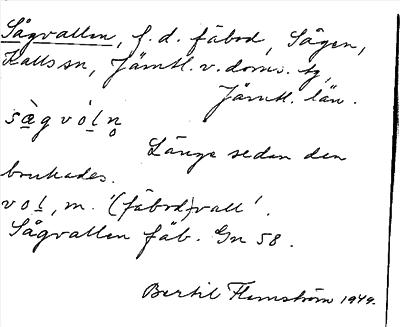 Sågvallen, f.d. fäbod, Sågen,
Kalls sn, Jämtl. v. doms. tg,
Jämtl. län.
sæ̀gvóln̥
Länge sedan den
brukades.
vol, m. '(fäbod)vall'.
Sågvallen fäb. Gn 58.
Bertil Flemström 1949.